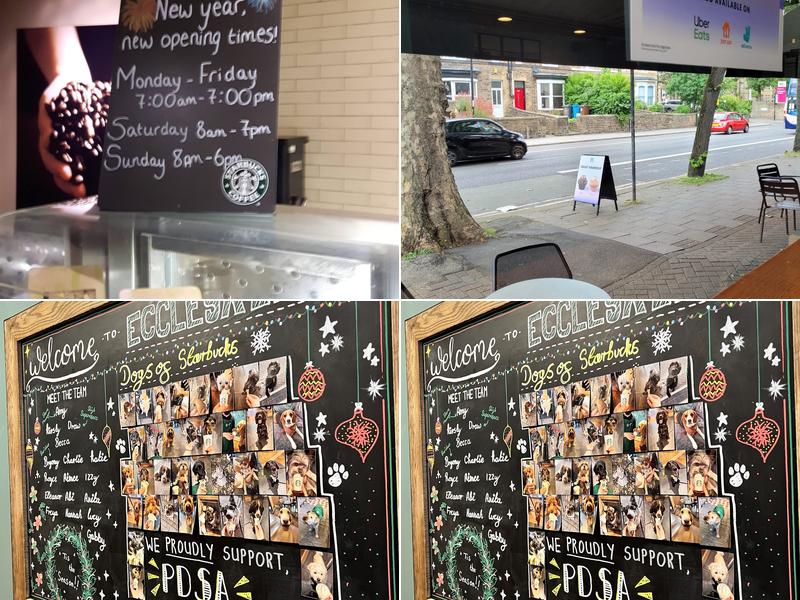 New year,
new opening times!
Monday - Friday
7:00am - 7:00pm
Saturday 8am - 7pm
Sunday 8am - 6pm
STARBUCKS
COFFEE
AVAILABLE ON
Uber
Eats
JUST EAT
deliveroo
welcome -TO- ECCLESA
Dogs of Starbucks
MEET THE TEAM
Amy
Kirsty Drew
Becca
Bryony Charlie Katie
Royce Aimee Izzy
Eleanor Abi Anita
Freya Hannah Lucy
Gabby
'Tis
the
Season!!
WE PROUDLY SUPPORT,
PDSA
welcome -TO- ECCLESA
Dogs of Starbucks
MEET THE TEAM
Amy
Kirsty Drew
Becca
Bryony Charlie Katie
Royce Aimee Izzy
Eleanor Abi Anita
Freya Hannah Lucy
Gabby
'Tis
the
Season!!
WE PROUDLY SUPPORT,
PDSA